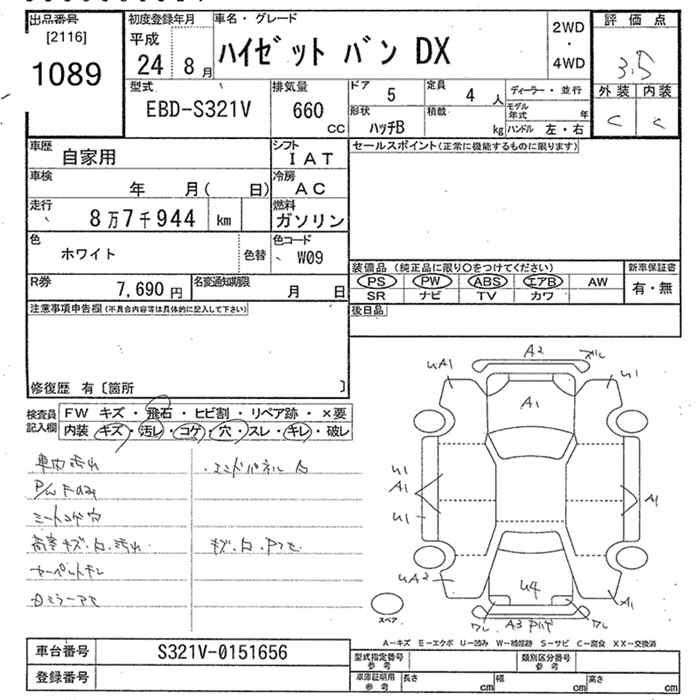 出品番号
[2116]
1089
初度登録年月
平成
24 8月
車名・グレード
ハイゼット バン DX
2WD
・
4WD
評価点
3.5
外装 内装
C C
型式
EBD-S321V
排気量
660
CC
ドア 5
定員 4 人
形状
ハッチB
積載 kg
ディーラー・並行
モデル年式 年
ハンドル 左・右
車歴 自家用
シフト
IAT
車検 年 月( 日)
冷房
AC
走行
8万7千944 km
燃料
ガソリン
色
ホワイト
色替
色コード
W09
R券 7,690 円
名変通知期限 月 日
注意事項申告欄(不具合内容等は具体的に記入して下さい)
修復歴 有〔箇所 〕
セールスポイント(正常に機能するものに限ります)
装備品(純正品に限り○をつけてください)
PS PW ABS エアB AW
SR ナビ TV カワ
新車保証書
有・無
後日品
検査員
記入欄
FW キズ・飛石・ヒビ割・リペア跡・×要
内装 キズ・汚レ・コゲ・穴・スレ・キレ・破レ
車内汚れ
シートコゲ穴
カーペットキレ
エンドパネル
A2
UA1
U1
A1
U1
A1
U1
A1
UA2
U4
A1
A3
スペア
A-キズ E-エクボ U-凹み W-補修跡 S-サビ C-腐食 XX-交換済
車台番号 S321V-0151656
登録番号
型式指定番号
参考
類別区分番号
参考
車庫証明用
参考
長さ cm
幅 cm
高さ cm